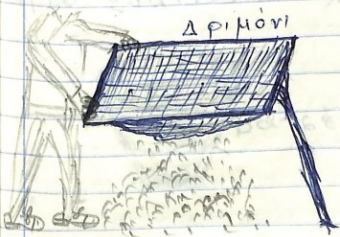 Δριμόνι